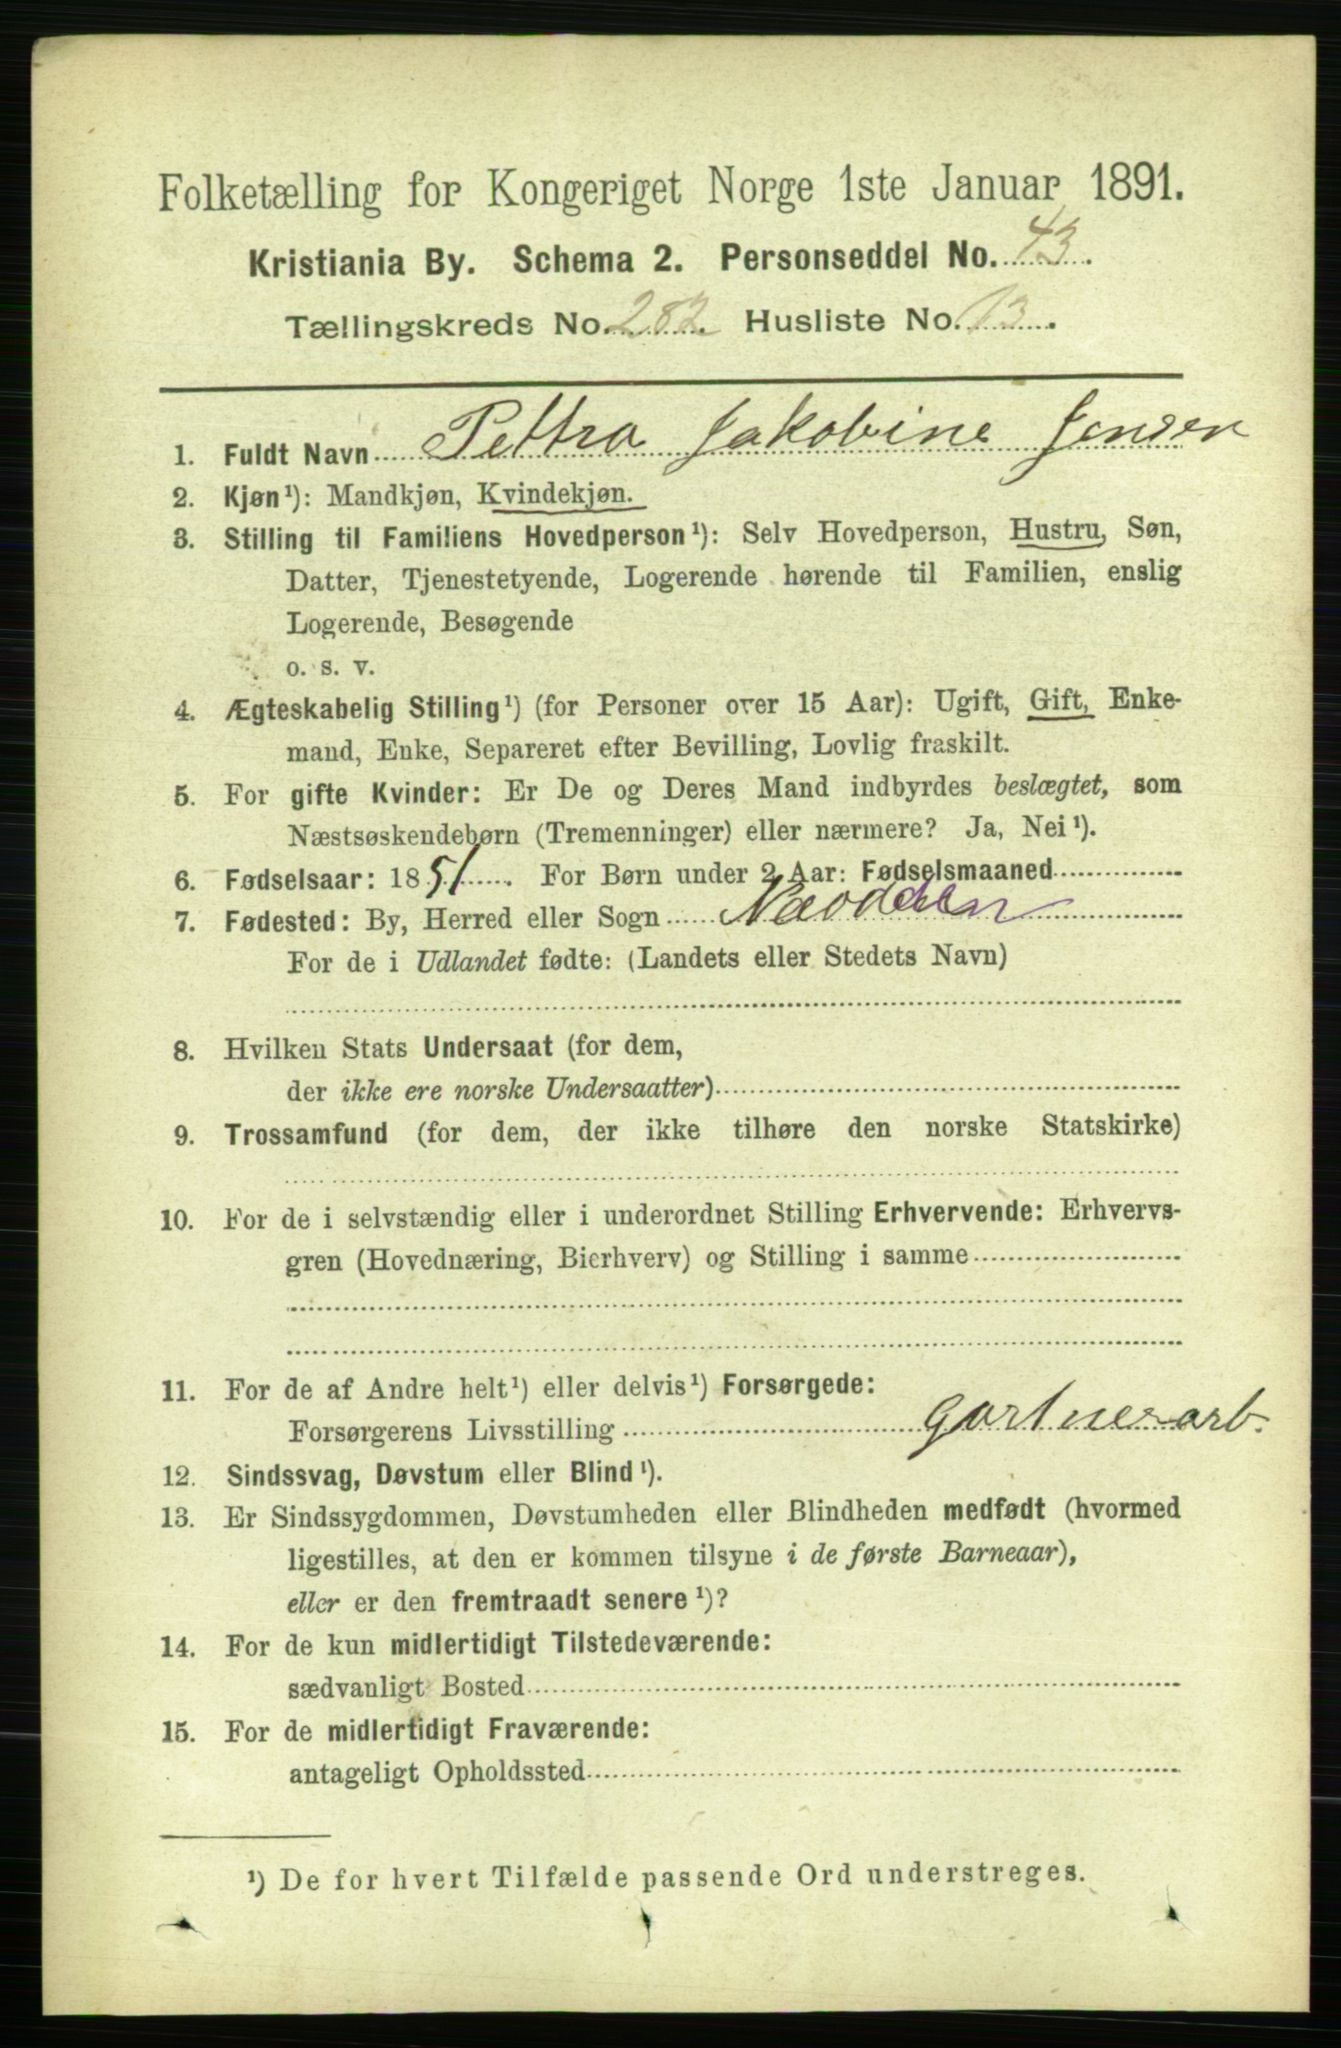 Folketælling for Kongeriget Norge 1ste Januar 1891.
Kristiania By. Schema 2. Personseddel No. 43.
Tællingskreds No. 282. Husliste No. 13.
1. Fuldt Navn Pettra Jakobine Jensen
2. Kjøn¹): Mandkjøn, Kvindekjøn.
3. Stilling til Familiens Hovedperson¹): Selv Hovedperson, Hustru, Søn,
Datter, Tjenestetyende, Logerende hørende til Familien, enslig
Logerende, Besøgende
o. s. v.
4. Ægteskabelig Stilling¹) (for Personer over 15 Aar): Ugift, Gift, Enke-
mand, Enke, Separeret efter Bevilling, Lovlig fraskilt.
5. For gifte Kvinder: Er De og Deres Mand indbyrdes beslægtet, som
Næstsøskendebørn (Tremenninger) eller nærmere? Ja, Nei¹).
6. Fødselsaar: 1851. For Børn under 2 Aar: Fødselsmaaned
7. Fødested: By, Herred eller Sogn
For de i Udlandet fødte: (Landets eller Stedets Navn)
8. Hvilken Stats Undersaat (for dem,
der ikke ere norske Undersaatter)
9. Trossamfund (for dem, der ikke tilhøre den norske Statskirke)
10. For de i selvstændig eller i underordnet Stilling Erhvervende: Erhvervs-
gren (Hovednæring, Bierhverv) og Stilling i samme
11. For de af Andre helt¹) eller delvis¹) Forsørgede:
Forsørgerens Livsstilling Gartnerarb.
12. Sindssvag, Døvstum eller Blind¹).
13. Er Sindssygdommen, Døvstumheden eller Blindheden medfødt (hvormed
ligestilles, at den er kommen tilsyne i de første Barneaar),
eller er den fremtraadt senere¹)?
14. For de kun midlertidigt Tilstedeværende:
sædvanligt Bosted
15. For de midlertidigt Fraværende:
antageligt Opholdssted
¹) De for hvert Tilfælde passende Ord understreges.